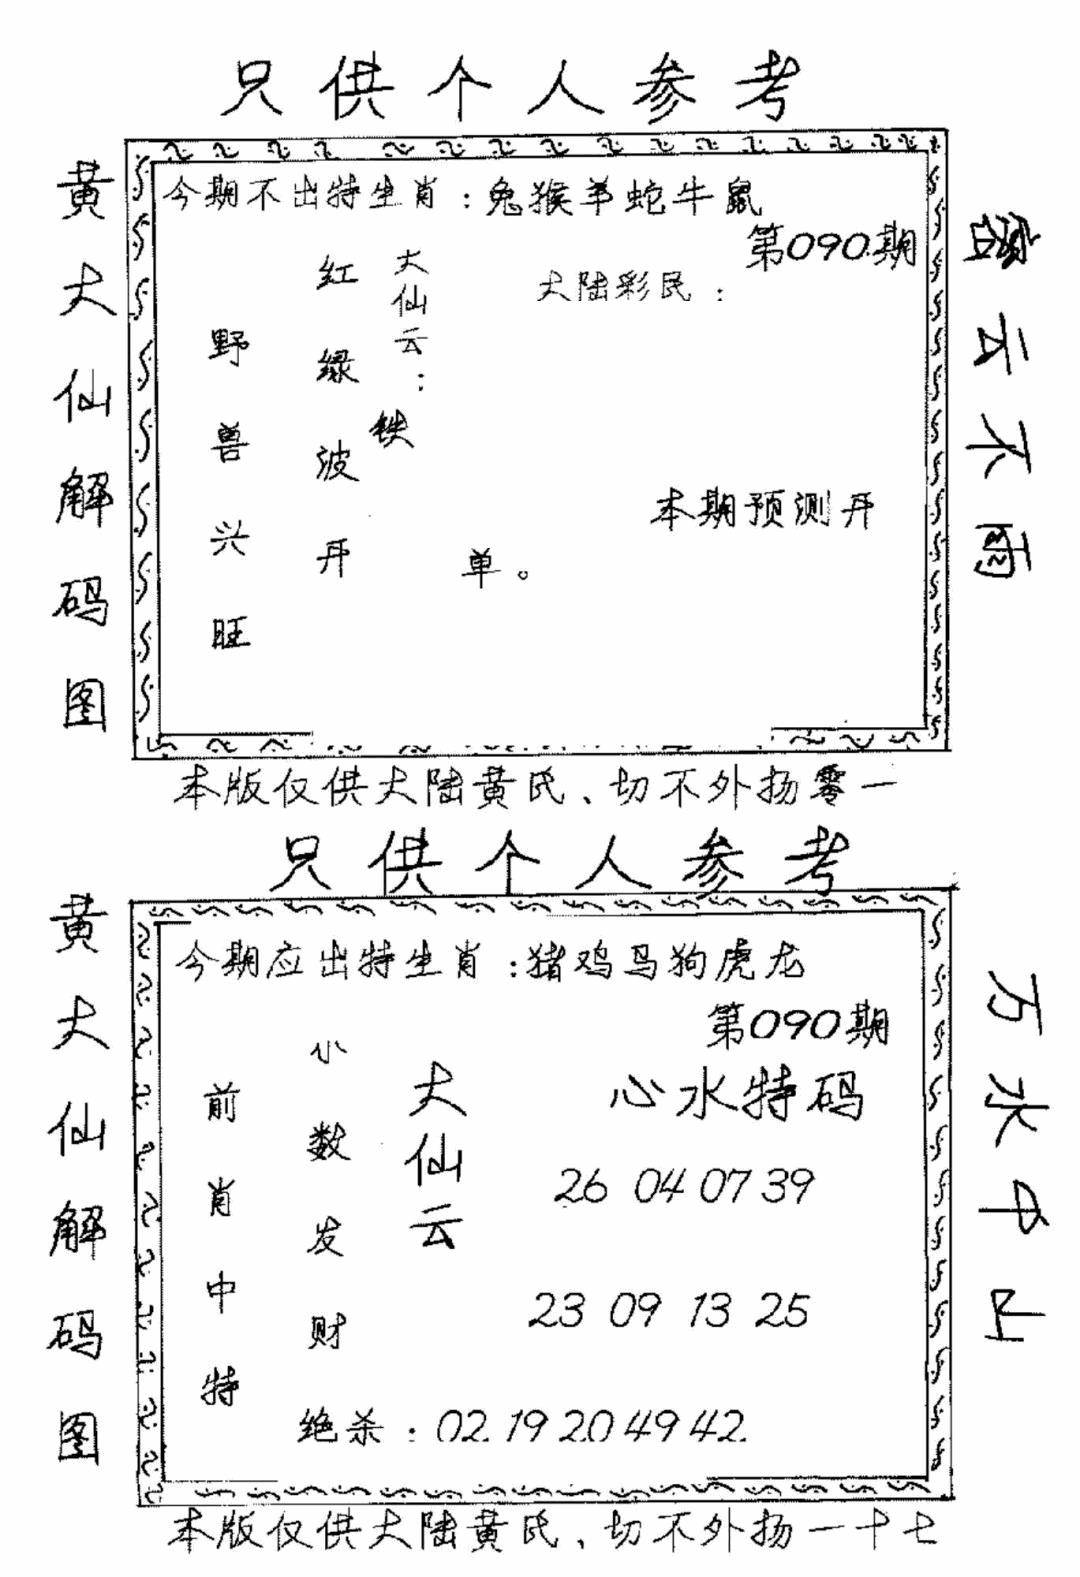 只供个人参考
黄大仙解码图
今期不出特生肖：兔猴羊蛇牛鼠
第090期
大陆彩民：
大仙云：
铁
红绿波开
单。
野兽兴旺
本期预测开
密云不雨
本版仅供大陆黄民、切不外扬零一
只供个人参考
黄大仙解码图
今期应出特生肖：猪鸡马狗虎龙
第090期
心水特码
大仙云
小数发财
前肖中特
26 04 07 39
23 09 13 25
绝杀：02 19 20 49 42
万水中山
本版仅供大陆黄民、切不外扬一十七